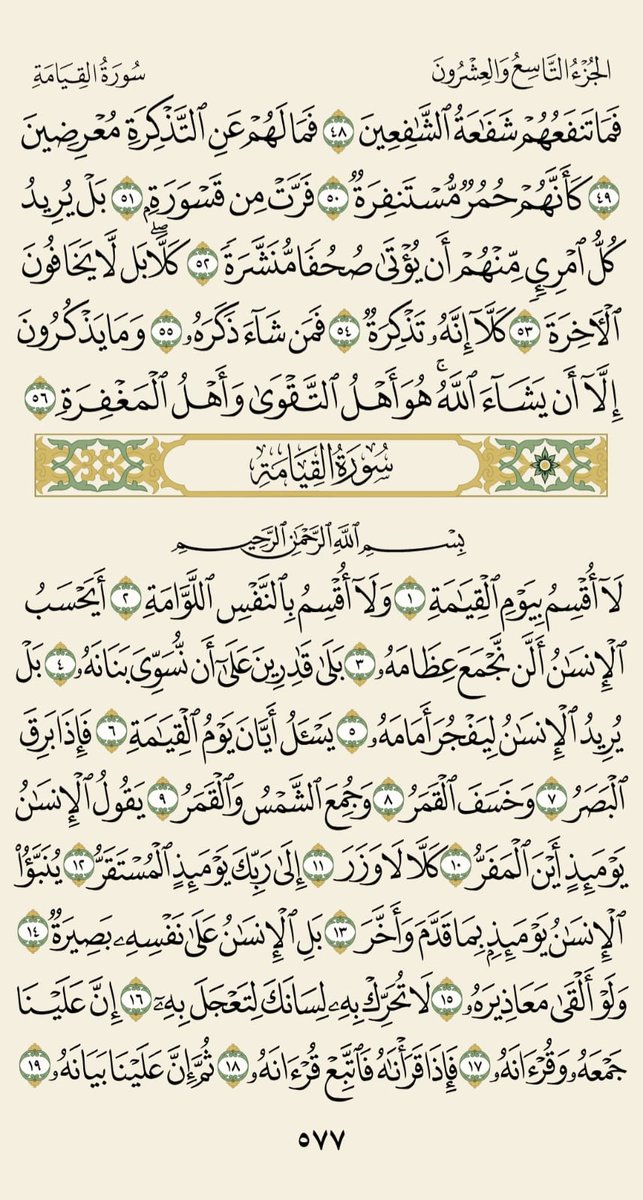 الجُزْءُ التَّاسِعُ وَالعِشْرُونَ سُورَةُ القِيَامَةِ
فَمَا تَنفَعُهُمْ شَفَٰعَةُ ٱلشَّٰفِعِينَ ٤٨ فَمَا لَهُمْ عَنِ ٱلتَّذْكِرَةِ مُعْرِضِينَ
٤٩ كَأَنَّهُمْ حُمُرٌ مُّسْتَنفِرَةٌ ٥٠ فَرَّتْ مِن قَسْوَرَةٍۭ ٥١ بَلْ يُرِيدُ
كُلُّ ٱمْرِئٍ مِّنْهُمْ أَن يُؤْتَىٰ صُحُفًا مُّنَشَّرَةً ٥٢ كَلَّا ۖ بَل لَّا يَخَافُونَ
ٱلْأَخِرَةَ ٥٣ كَلَّآ إِنَّهُۥ تَذْكِرَةٌ ٥٤ فَمَن شَآءَ ذَكَرَهُۥ ٥٥ وَمَا يَذْكُرُونَ
إِلَّآ أَن يَشَآءَ ٱللَّهُ ۚ هُوَ أَهْلُ ٱلتَّقْوَىٰ وَأَهْلُ ٱلْمَغْفِرَةِ ٥٦
سُورَةُ القِيَامَةِ
بِسْمِ ٱللَّهِ ٱلرَّحْمَٰنِ ٱلرَّحِيمِ
لَآ أُقْسِمُ بِيَوْمِ ٱلْقِيَٰمَةِ ١ وَلَآ أُقْسِمُ بِٱلنَّفْسِ ٱللَّوَّامَةِ ٢ أَيَحْسَبُ
ٱلْإِنسَٰنُ أَلَّن نَّجْمَعَ عِظَامَهُۥ ٣ بَلَىٰ قَٰدِرِينَ عَلَىٰٓ أَن نُّسَوِّىَ بَنَانَهُۥ ٤ بَلْ
يُرِيدُ ٱلْإِنسَٰنُ لِيَفْجُرَ أَمَامَهُۥ ٥ يَسْـَٔلُ أَيَّانَ يَوْمُ ٱلْقِيَٰمَةِ ٦ فَإِذَا بَرِقَ
ٱلْبَصَرُ ٧ وَخَسَفَ ٱلْقَمَرُ ٨ وَجُمِعَ ٱلشَّمْسُ وَٱلْقَمَرُ ٩ يَقُولُ ٱلْإِنسَٰنُ
يَوْمَئِذٍ أَيْنَ ٱلْمَفَرُّ ١٠ كَلَّا لَا وَزَرَ ١١ إِلَىٰ رَبِّكَ يَوْمَئِذٍ ٱلْمُسْتَقَرُّ ١٢ يُنَبَّؤُا۟
ٱلْإِنسَٰنُ يَوْمَئِذٍۭ بِمَا قَدَّمَ وَأَخَّرَ ١٣ بَلِ ٱلْإِنسَٰنُ عَلَىٰ نَفْسِهِۦ بَصِيرَةٌ ١٤
وَلَوْ أَلْقَىٰ مَعَاذِيرَهُۥ ١٥ لَا تُحَرِّكْ بِهِۦ لِسَانَكَ لِتَعْجَلَ بِهِۦٓ ١٦ إِنَّ عَلَيْنَا
جَمْعَهُۥ وَقُرْءَانَهُۥ ١٧ فَإِذَا قَرَأْنَٰهُ فَٱتَّبِعْ قُرْءَانَهُۥ ١٨ ثُمَّ إِنَّ عَلَيْنَا بَيَانَهُۥ ١٩
٥٧٧